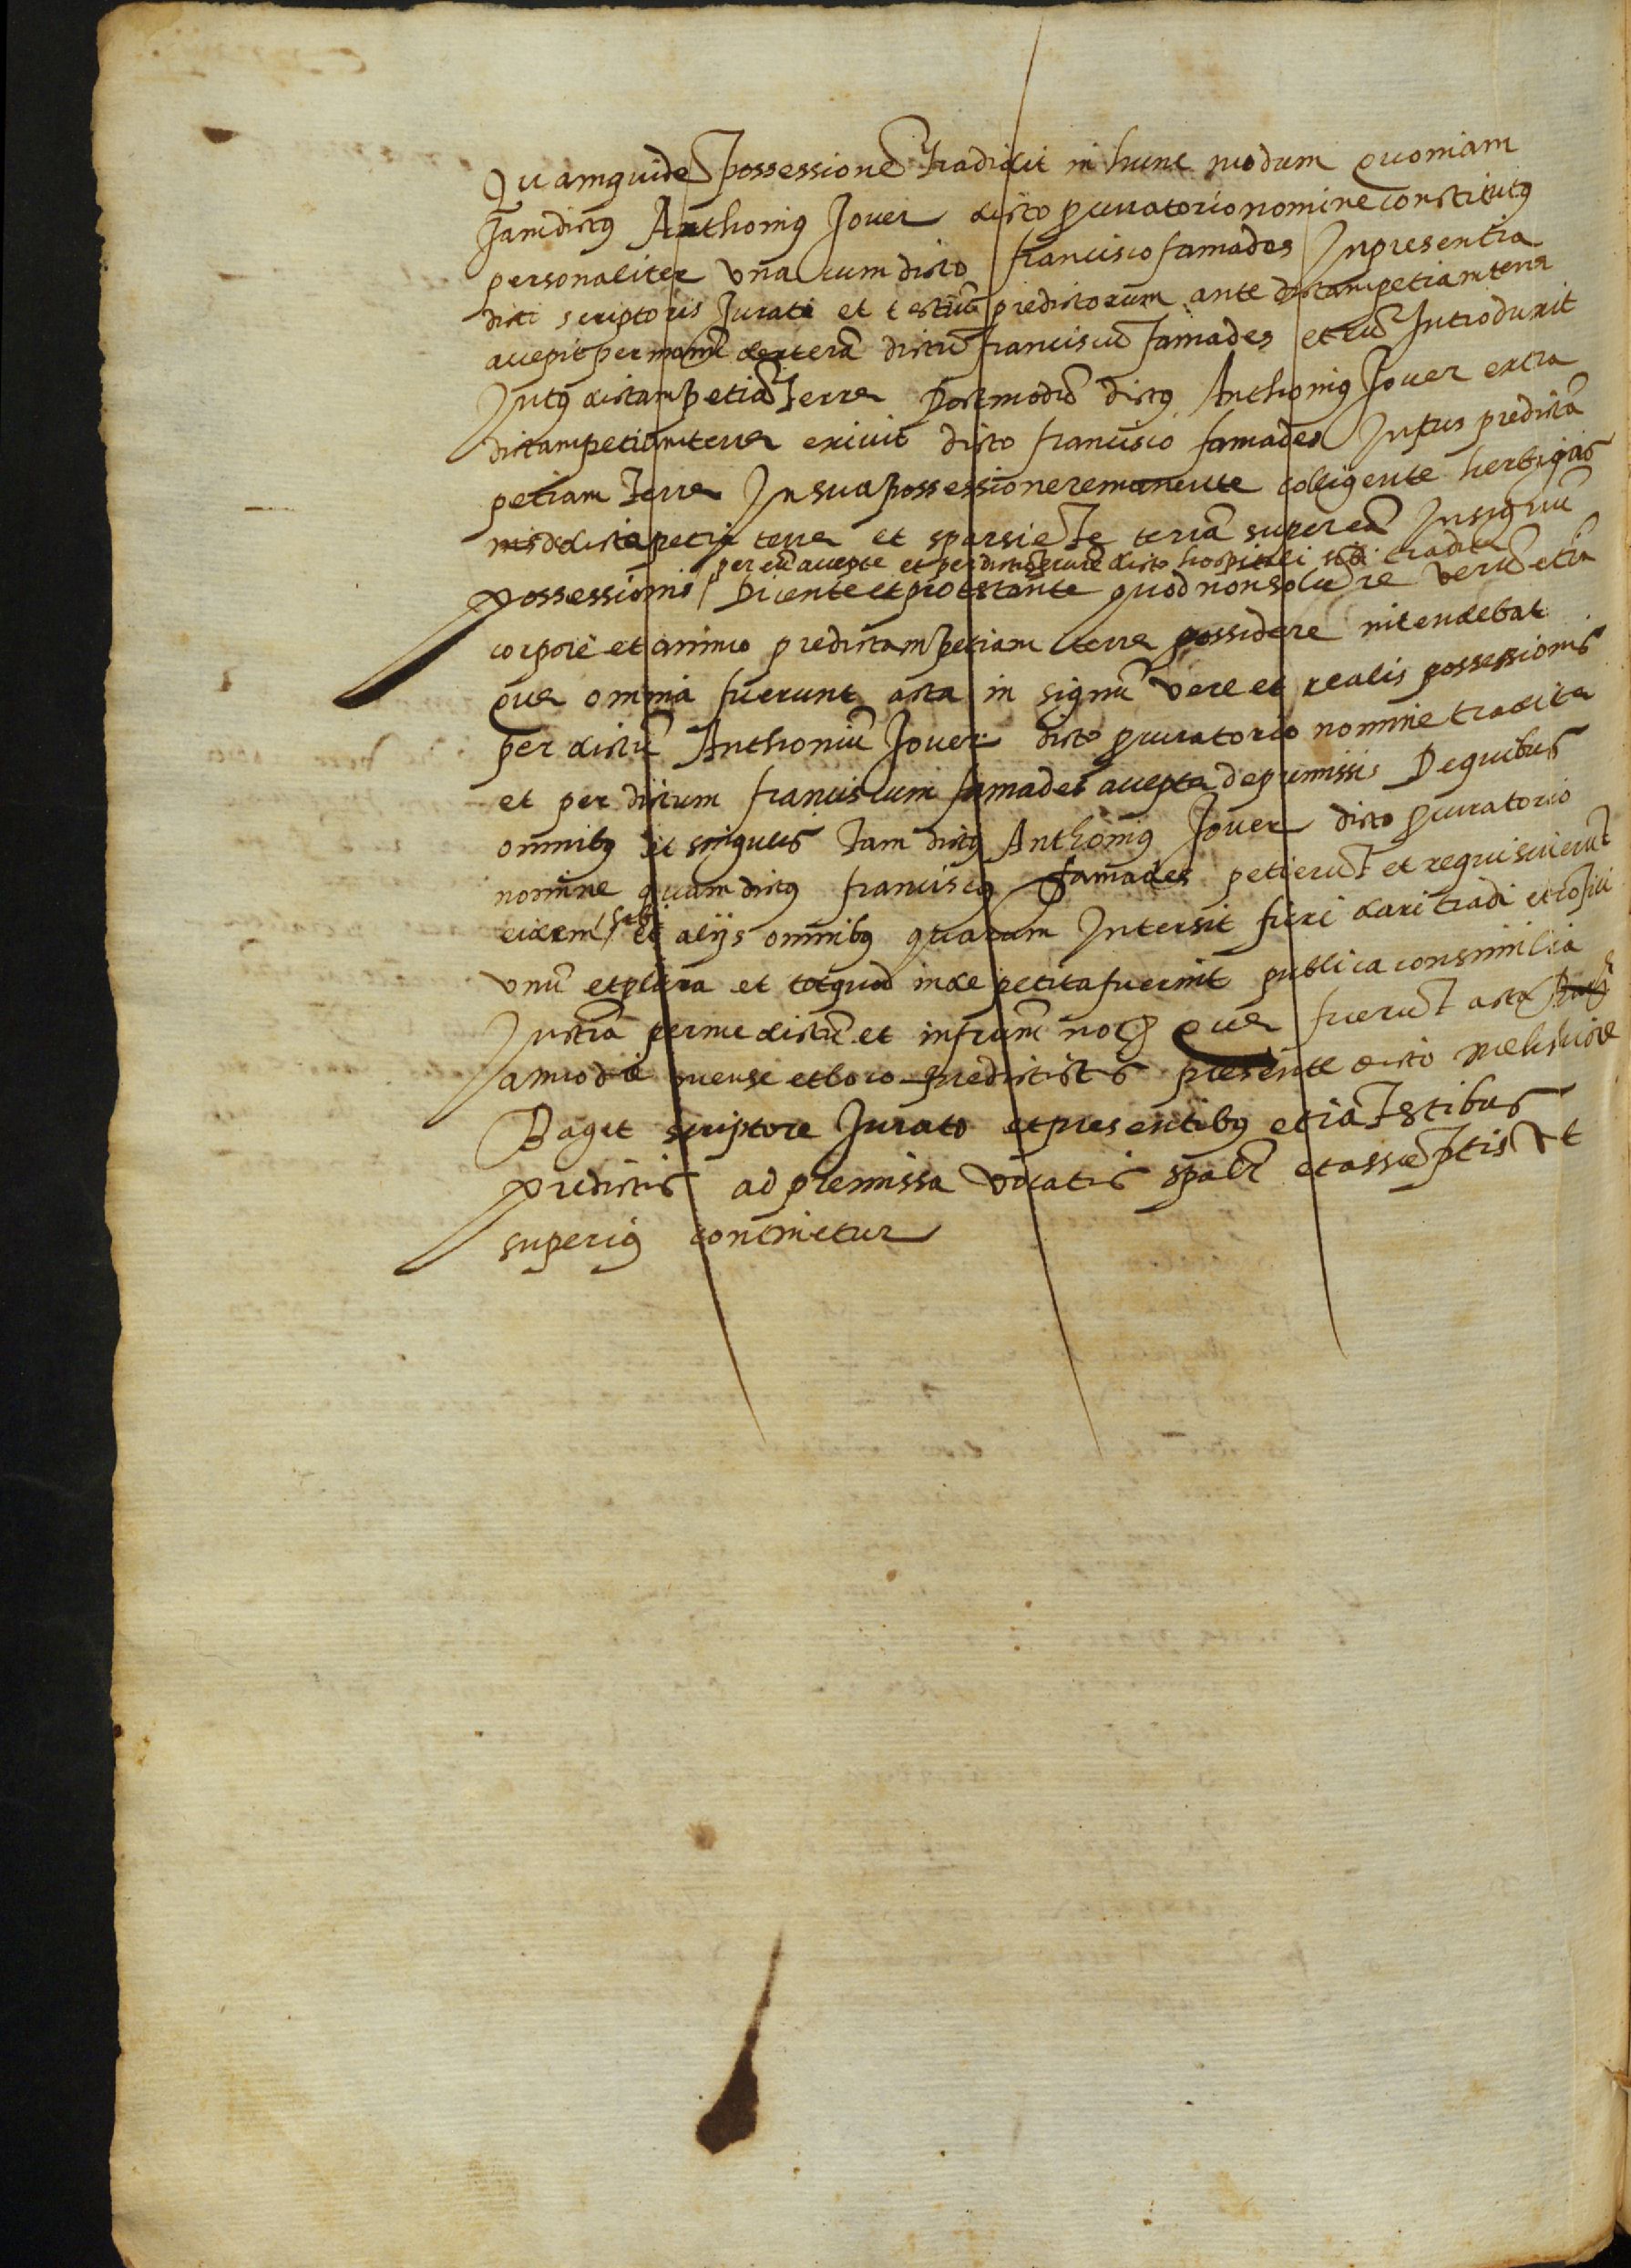 Quamquidē possessionē tradidit in hunc modum Quoniam
Jamdictꝰ Anthoniꝰ Jouer dicto ꝓcuratorio nomine constitutꝰ
personaliter vna cum dicto francisco famades Inpresentia
dicti scriptoris Jurati et testiū predictorum ante dictam petiam terre
accepit per manū dexterā dictū franciscū famades et eū Introduxit
Intꝰ dictam petiā terre Postmodū dictꝰ Anthoniꝰ Jouer extra
dictam petiam terre exiuit dicto francisco famades Intus predictā
petiam terre In sua possessione remanente colligente herbis
de dicta petia terre et spargiēte terrā super eā In signū
per eū accepte et per dictū Jouer dicto hospitali tradite
possessionis / Dicente et protestante quod non solū re verū etiā
corpore et animo predictam petiam terre possidere intendebat
Que omnia fuerunt acta in signū vere et realis possessionis
per dictū Anthoniū Jouer dicto ꝓcuratorio nomine tradite
et per dictum franciscum famades accepte de premissis De quibus
omnibꝰ et singulis Jam dictꝰ Anthoniꝰ Jouer dicto ꝓcuratorio
nomine quam dictꝰ franciscꝰ famades petierūt et requisiuerūt
eidem / sibi et alijs omnibꝰ quarum Intersit fieri dari tradi et
vnū et plura et totquod inde petita fuerint publica consimilia
Instrā per me dictū et infrūm noṫ Que fuerūt acta
anno die mense et loco predictis presente dicto melchiore
Baget scriptore Jurato et presentibꝰ etiā testibus
predictis ad premissa vocatis spālr et assūptis vt
superiꝰ continetur